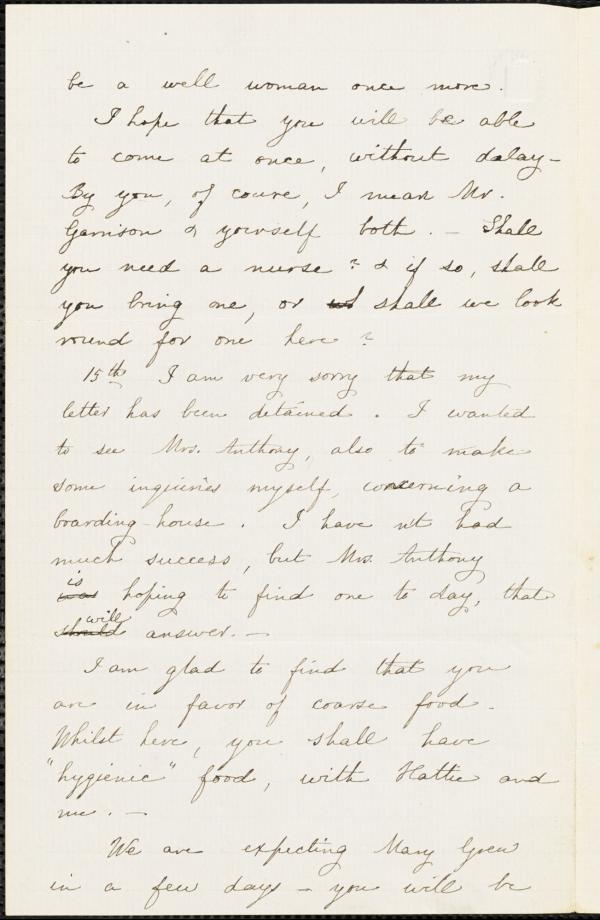 be a well woman once more.
I hope that you will be able
to come at once, without delay –
By you, of course, I mean Mr.
Garrison & yourself both. – Shall
you need a nurse? & if so, shall
you bring one, or shall we look
round for one here?
15th I am very sorry that my
letter has been detained. I wanted
to see Mrs. Anthony, also to make
some inquiries myself, concerning a
boarding-house. I have n't had
much success, but Mrs. Anthony
is
was hoping to find one to day, that
will
should answer. –
I am glad to find that you
are in favor of coarse food.
Whilst here, you shall have
"hygienic" food, with Hattie and
me. –
We are expecting Mary Grew
in a few days – you will be